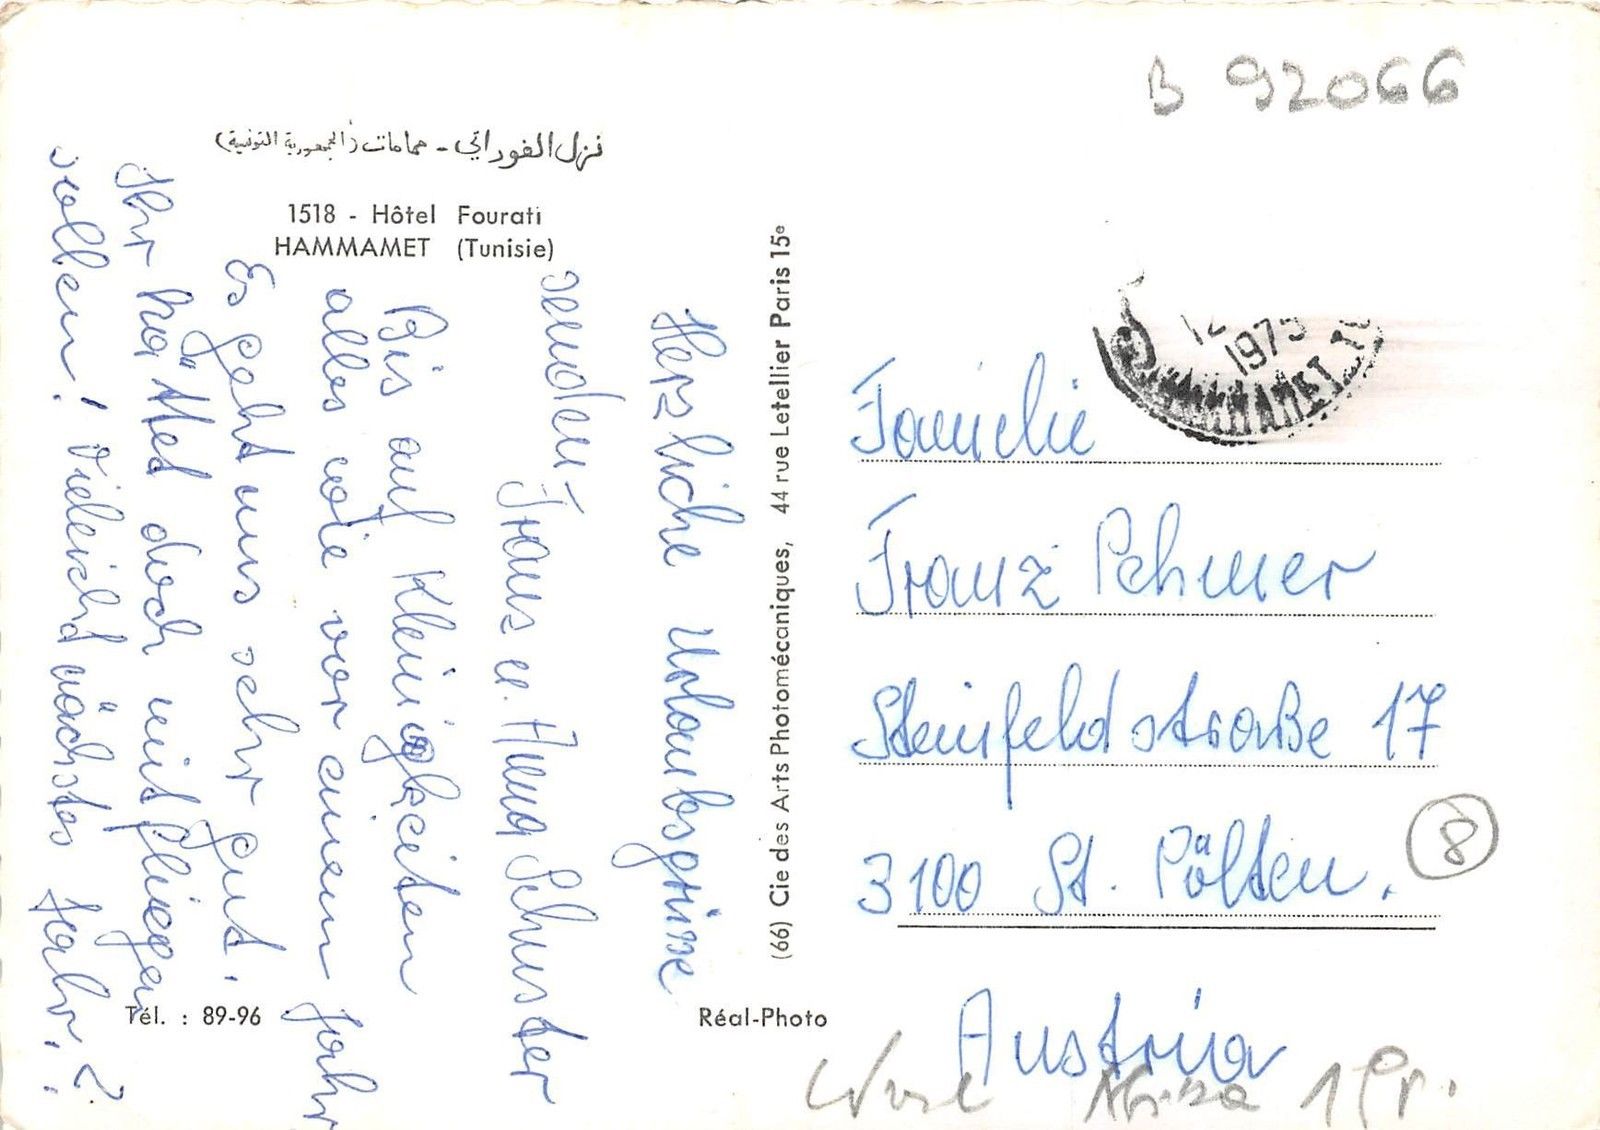 B 92066
نزل الفوراتي - حمامات (الجمهورية التونسية)
1518 - Hôtel Fourati
HAMMAMET (Tunisie)
Herzliche Urlaubsgrüsse
senden Franz u. Anna Schuster
Bis auf Kleinigkeiten
alles wie vor einem Jahr
Es geht uns sehr gut.
Ihr hättet doch mitfliegen
sollen! Vieleicht nächstes Jahr.?
Tél. : 89-96
Réal-Photo
(66) Cie des Arts Photomécaniques, 44 rue Letellier Paris 15e
12
1975
HAMMAMET
Familie
Franz Pehmer
Steinfeldstraße 17
3100 St. Pölten.
8
Austria
Afrika 1